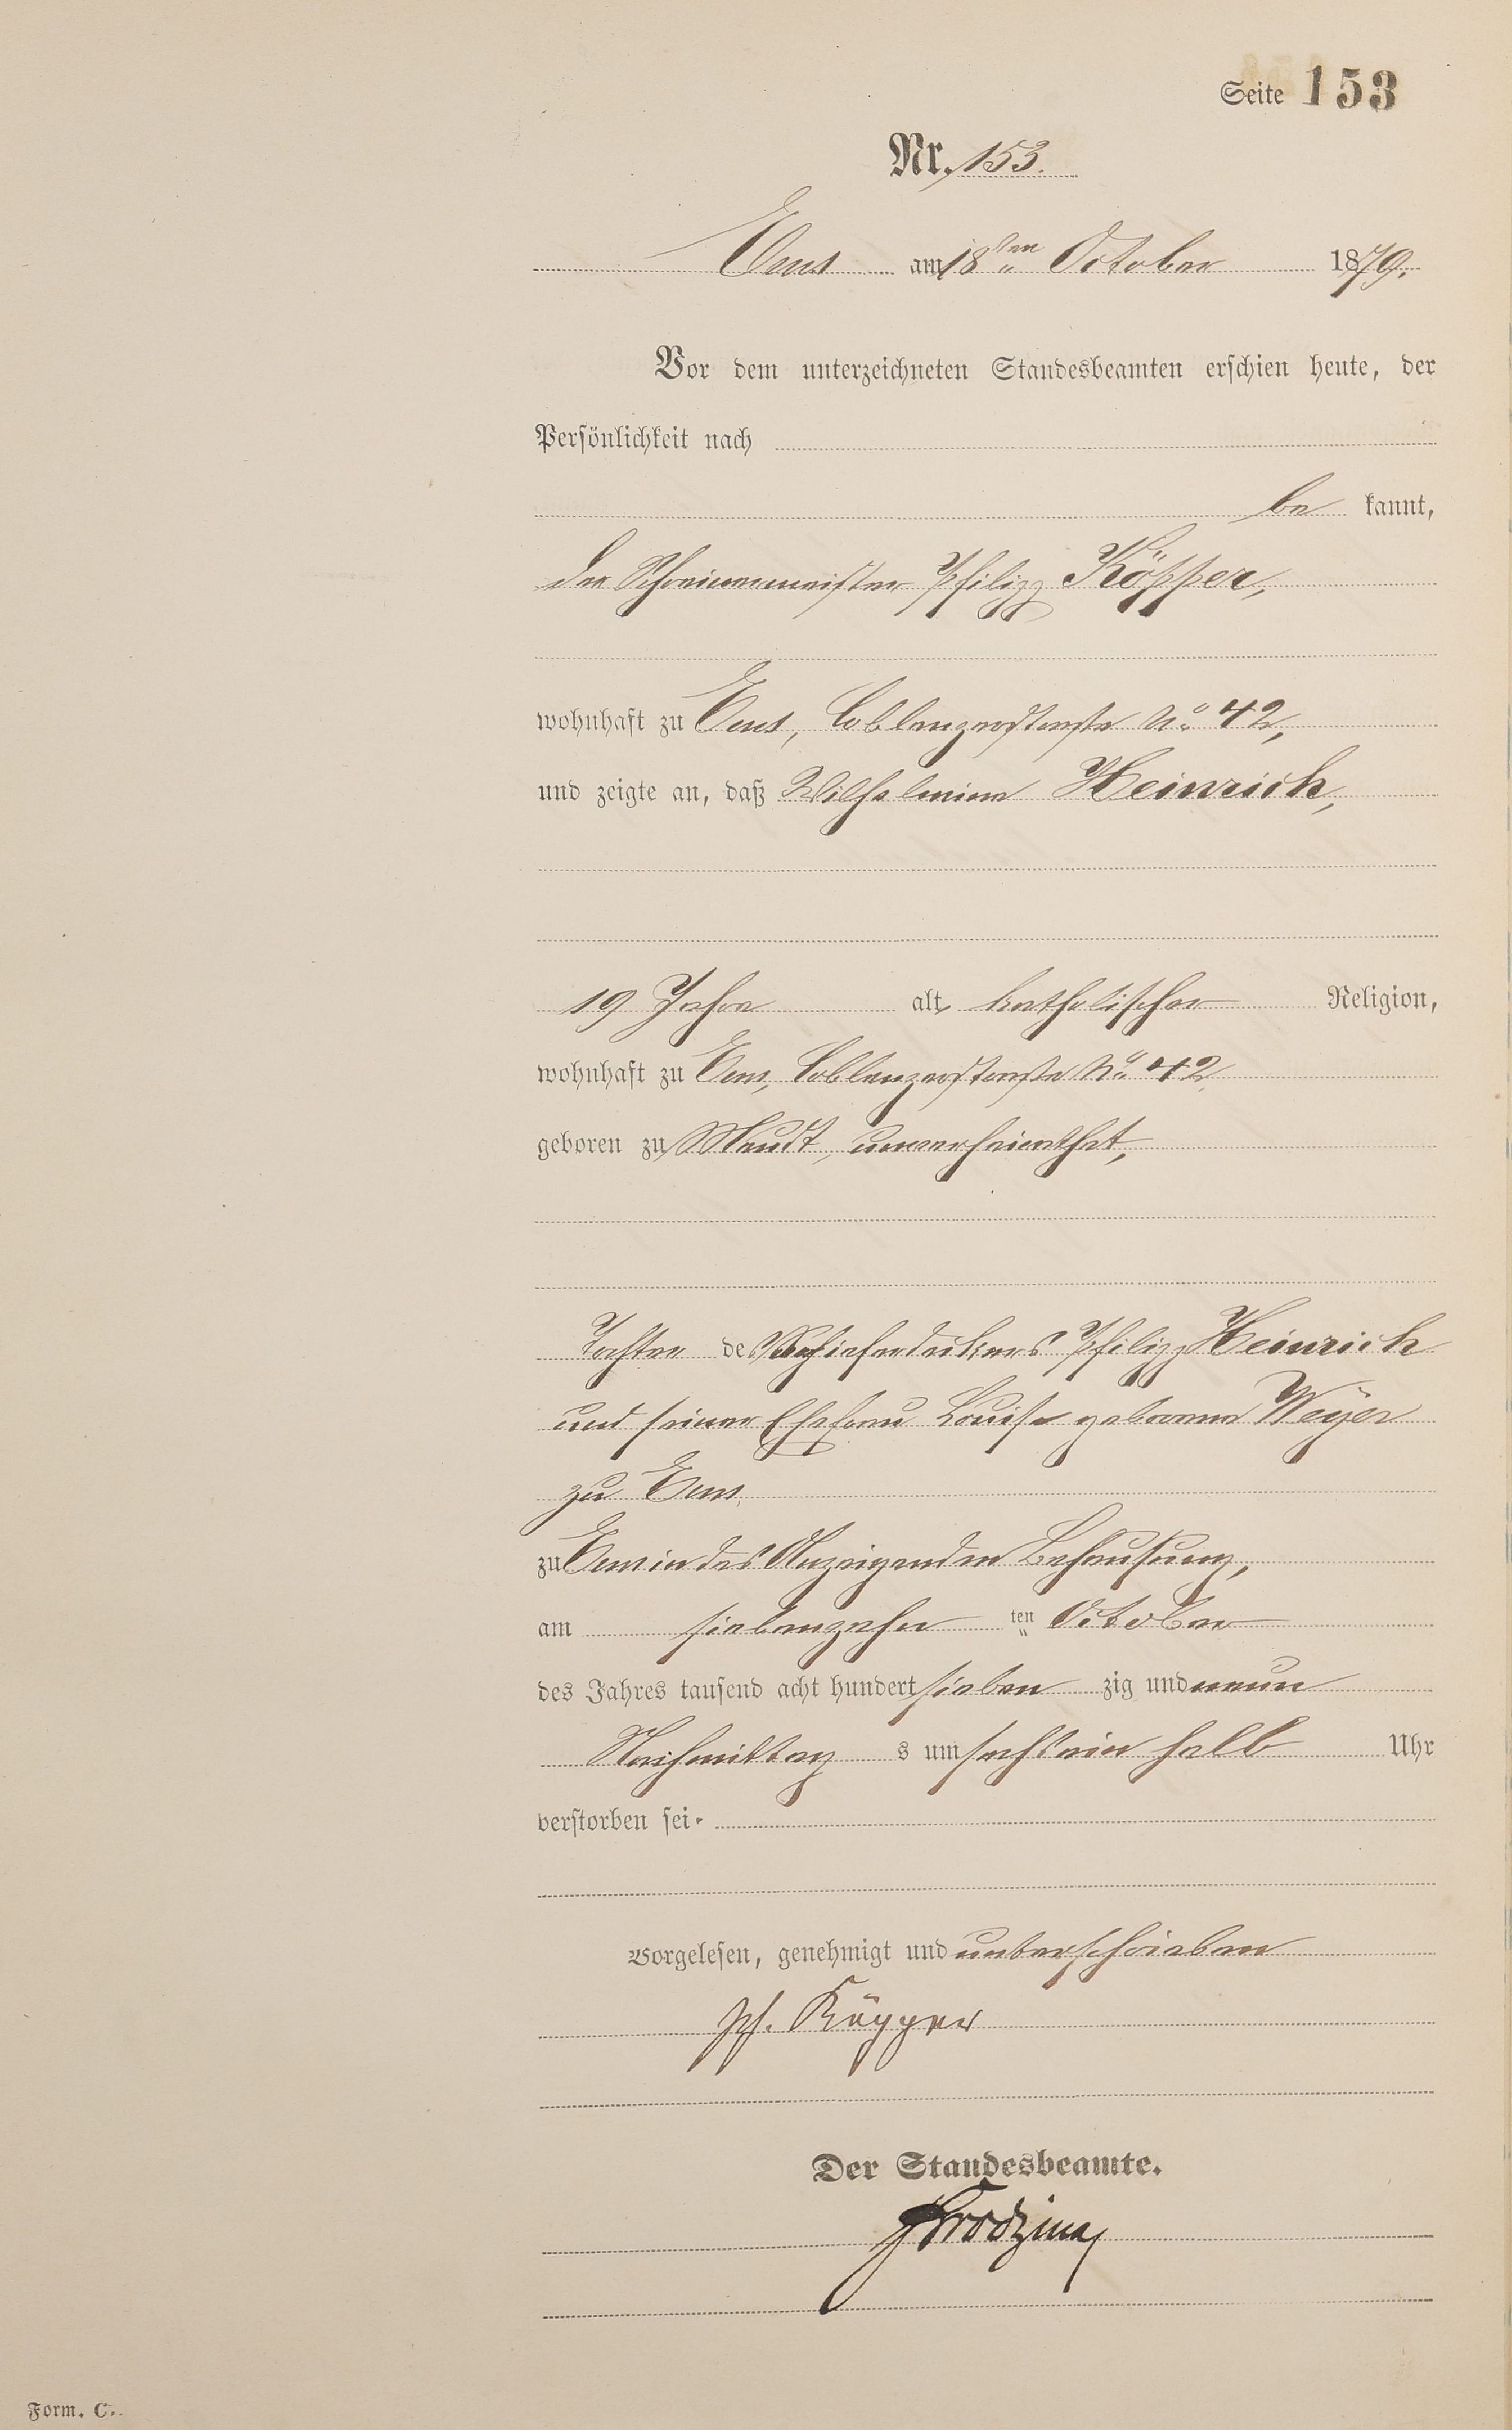 Seite 153
Nr. 153.
Ems am 18ten October 1879.
Vor dem unterzeichneten Standesbeamten erschien heute, der
Persönlichkeit nach
be kannt,
der Schreinermeister Philipp Köpper,
wohnhaft zu Ems, Coblenzerstraße No 42,
und zeigte an, daß Wilhelmine Heinrich,
19 Jahre alt, katholischer Religion,
wohnhaft zu Ems, Coblenzerstraße No 42,
geboren zu Meudt, unverheirathet,
Tochter des Schieferdeckers Philipp Heinrich
und seiner Ehefrau Louise geborene Weyer
zu Ems,
zu Ems in des Anzeigenden Behausung,
am siebenzehn ten October
des Jahres tausend acht hundert sieben zig und neun
Nachmittag s um sechs ein halb Uhr
verstorben sei.
Vorgelesen, genehmigt und unterschrieben
Ph. Köpper
Der Standesbeamte.
Form. C.